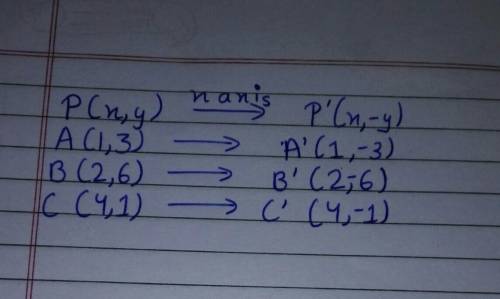 P(x,y) x axis → P'(x,-y)
A(1,3) → A'(1,-3)
B(2,6) → B'(2,-6)
C(4,1) → C'(4,-1)